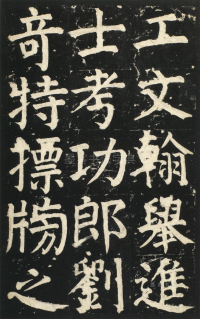 工文翰舉進
士考功郎劉
奇特摽牓之